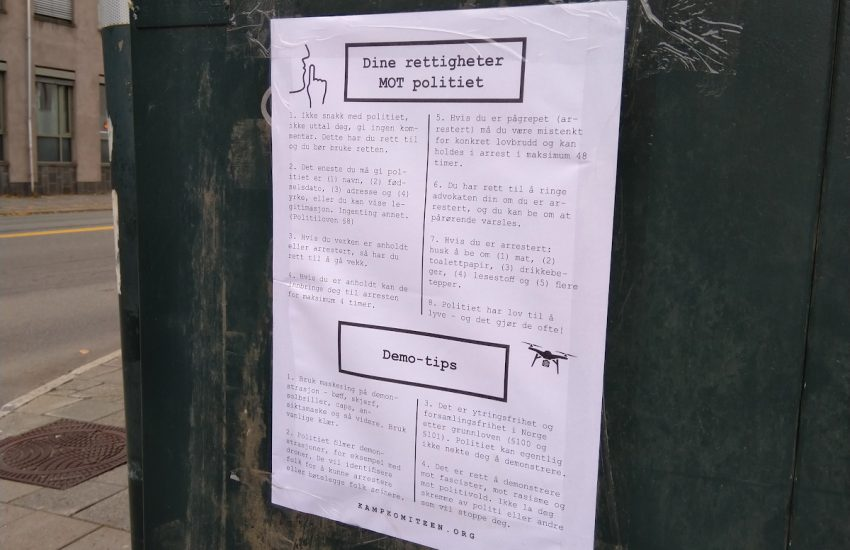 Dine rettigheter
MOT politiet
1. Ikke snakk med politiet,
ikke uttal deg, gi ingen kom-
mentar. Dette har du rett til
og du bør bruke retten.
2. Det eneste du må gi pol-
itiet er (1) navn, (2) fød-
selsdato, (3) adresse og (4)
yrke, eller du kan vise le-
gitimasjon. Ingenting annet.
(Politiloven §8)
3. Hvis du verken er anholdt
eller arrestert, så har du
rett til å gå vekk.
4. Hvis du er anholdt kan de
innbringe deg til arresten
for maksimum 4 timer.
5. Hvis du er pågrepet (ar-
restert) må du være mistenkt
for konkret lovbrudd og kan
holdes i arrest i maksimum 48
timer.
6. Du har rett til å ringe
advokaten din om du er ar-
restert, og du kan be om at
pårørende varsles.
7. Hvis du er arrestert:
husk å be om (1) mat, (2)
toalettpapir, (3) drikkebe-
ger, (4) lesestoff og (5) flere
tepper.
8. Politiet har lov til å
lyve - og det gjør de ofte!
Demo-tips
1. Bruk maskering på demon-
strasjon - bøff, skjerf,
solbriller, caps, an-
siktsmaske og så videre. Bruk
vanlige klær.
2. Politiet filmer demon-
strasjoner, for eksempel med
droner. De vil identifisere
folk for å kunne arrestere
eller bøtelegge folk seinere.
3. Det er ytringsfrihet og
forsamlingsfrihet i Norge
etter grunnloven (§100 og
§101). Politiet kan egentlig
ikke nekte deg å demonstrere.
4. Det er rett å demonstrere
mot fascister, mot rasisme og
mot politivold. Ikke la deg
skremme av politi eller andre
som vil stoppe deg.
KAMPKOMITEEN.ORG